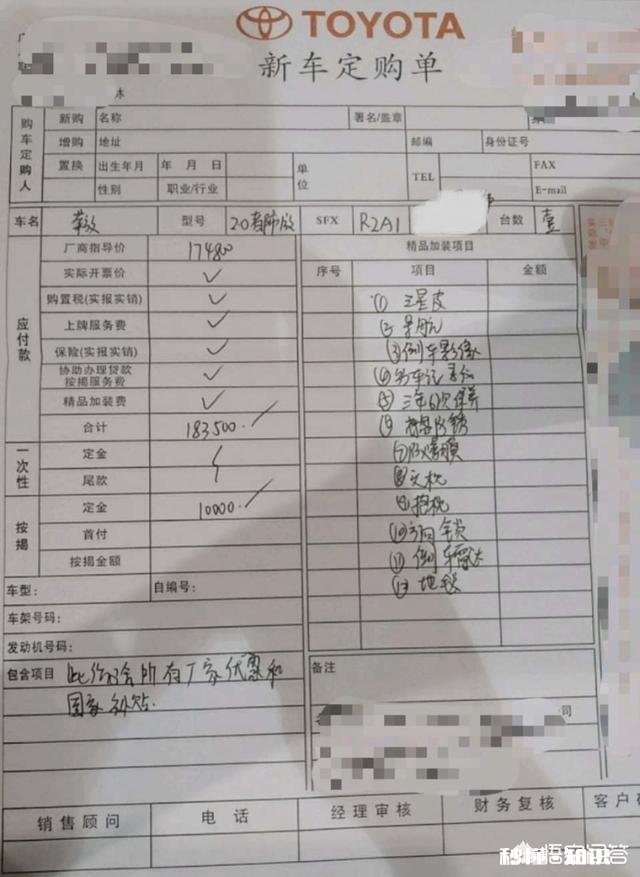 TOYOTA
新车定购单
购车定购人
新购 名称 署名/盖章
增购 地址 邮编 身份证号
置换 出生年月 年 月 日 单位 TEL FAX
性别 职业/行业 E-mail
车名 型号 SFX R2A1 台数 壹
应付款
厂商指导价 174800
实际开票价 ✓
购置税(实报实销) ✓
上牌服务费 ✓
保险(实报实销) ✓
协助办理贷款按揭服务费 ✓
精品加装费 ✓
合计 183500
一次性
定金
尾款
按揭
定金 10000
首付
按揭金额
车型: 自编号:
车架号码:
发动机号码:
包含项目 此价格含所有厂家优惠和
国家补贴.
精品加装项目
序号 项目 金额
① 三星皮
② 导航
③ 倒车影像
④ 行车记录仪
⑤ 三年6次保养
⑥ 底盘防锈
⑦ 防爆膜
⑩ 方向盘锁
⑪ 倒车雷达
⑫ 地毯
备注
公司
销售顾问 电话 经理审核 财务复核 客户
秒懂知识
悟空问答